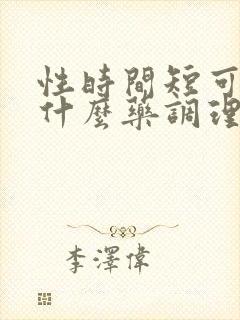 性時間短可
什麼藥調理
李澤偉